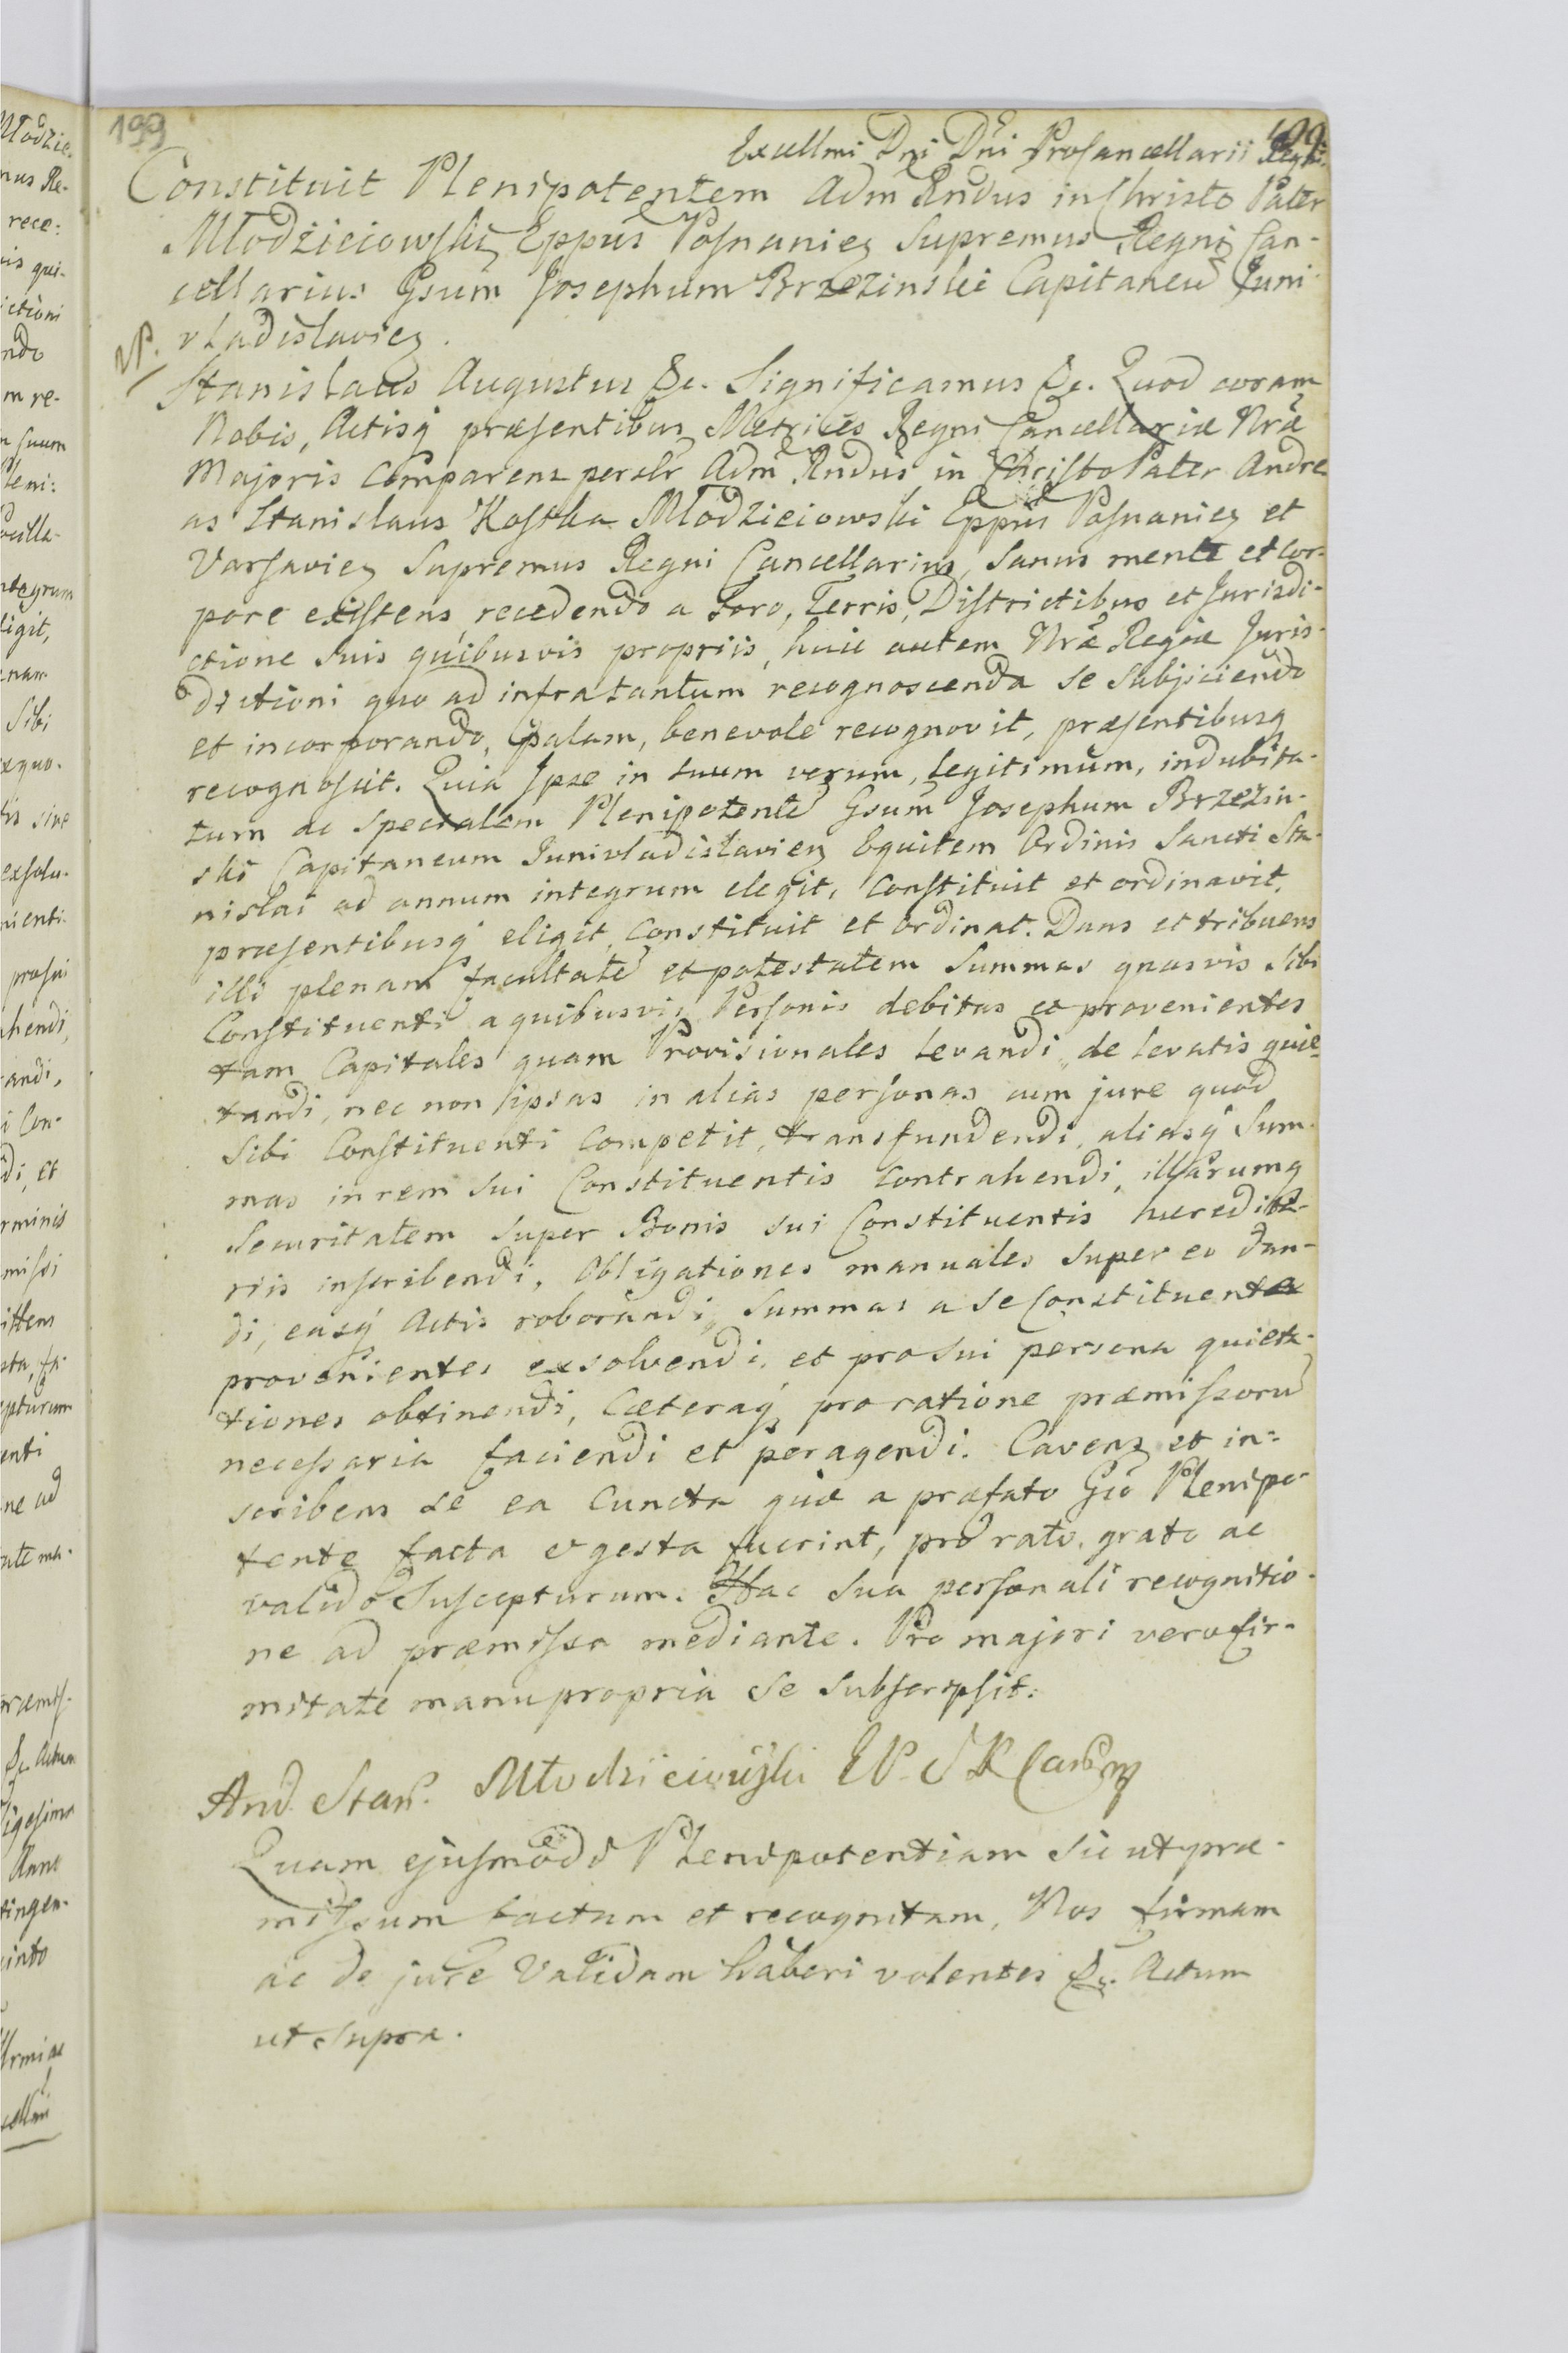 199
199
Excellmi Dni Dni Procancellarii Regni
Constituit Plenipotentem Adm Rndus in Christo Pater
Młodzieiowski Eppus Posnanien Supremus Regni Can-
cellarius Gsum Josephum Brzezinski Capitaneu Juni-
vladislavien.
Stanislaus Augustus &c. Significamus &c. Quod coram
Nobis, Actisq præsentibus Metrices Regni Cancellariæ Nræ
Majoris Comparens persltr Adm Rndus in Christo Pater Andre
as Stanislaus Kostka Młodzieiowski Eppus Posnanien et
Varsavien Supremus Regni Cancellarius, Sanus mente et Cor-
pore existens, recedendo a Foro, Terris, Districtibus et Jurisdi-
ctione suis quibusvis propriis, huic autem Nræ Regiæ Juris-
dictioni quo ad infra tantum recognoscenda se subjiciendo
et incorporando, palam, benevole recognovit, præsentibusq
recognoscit. Quia Ipse in suum verum, legitimum, indubita-
tum ac specialem Plenipotente Gsum Josephum Brzezin-
ski Capitaneum Junivladislavien Equitem Ordinis Sancti Sta-
nislai ad annum integrum elegit, Constituit et ordinavit,
præsentibusq eligit, Constituit et ordinat. Dans et tribuens
illi plenam facultate et potestatem Summas quasvis sibi
Constituenti a quibusvis Personis debitas et provenientes
tam Capitales quam Provisionales levandi, de levatis quie-
tandi, nec non ipsas in alias personas cum jure quod
sibi Constituenti Competit, transfundendi, aliasq Sum-
mas in rem sui Constituentis contrahendi, illarumq
Securitatem super Bonis sui Constituentis heredita-
riis inscribendi, Obligationes manuales super eo dan-
di, easq Actis roborandi, Summas a se Constituente
provenientes exsolvendi, et pro sui persona quieta-
tiones obtinendi, Cæteraq pro ratione præmissoru
necessaria faciendi et peragendi. Cavens et in-
scribens se ea Cuncta quæ a præfato Gso Plenipo-
tente facta et gesta fuerint, pro rato, grato ac
valido Suscepturum. Hac Sua personali recognitio-
ne ad præmissa mediante. Pro majori vero fir-
mitate manu propria se subscripsit.
And Stan. Młodzieiowski EP. S R Canc mp
Quam ejusmodi Plenipotentiam sic ut præ-
missum factam et recognitam, Nos firmam
ac de jure Validam haberi volentes &c. Actum
ut supra.